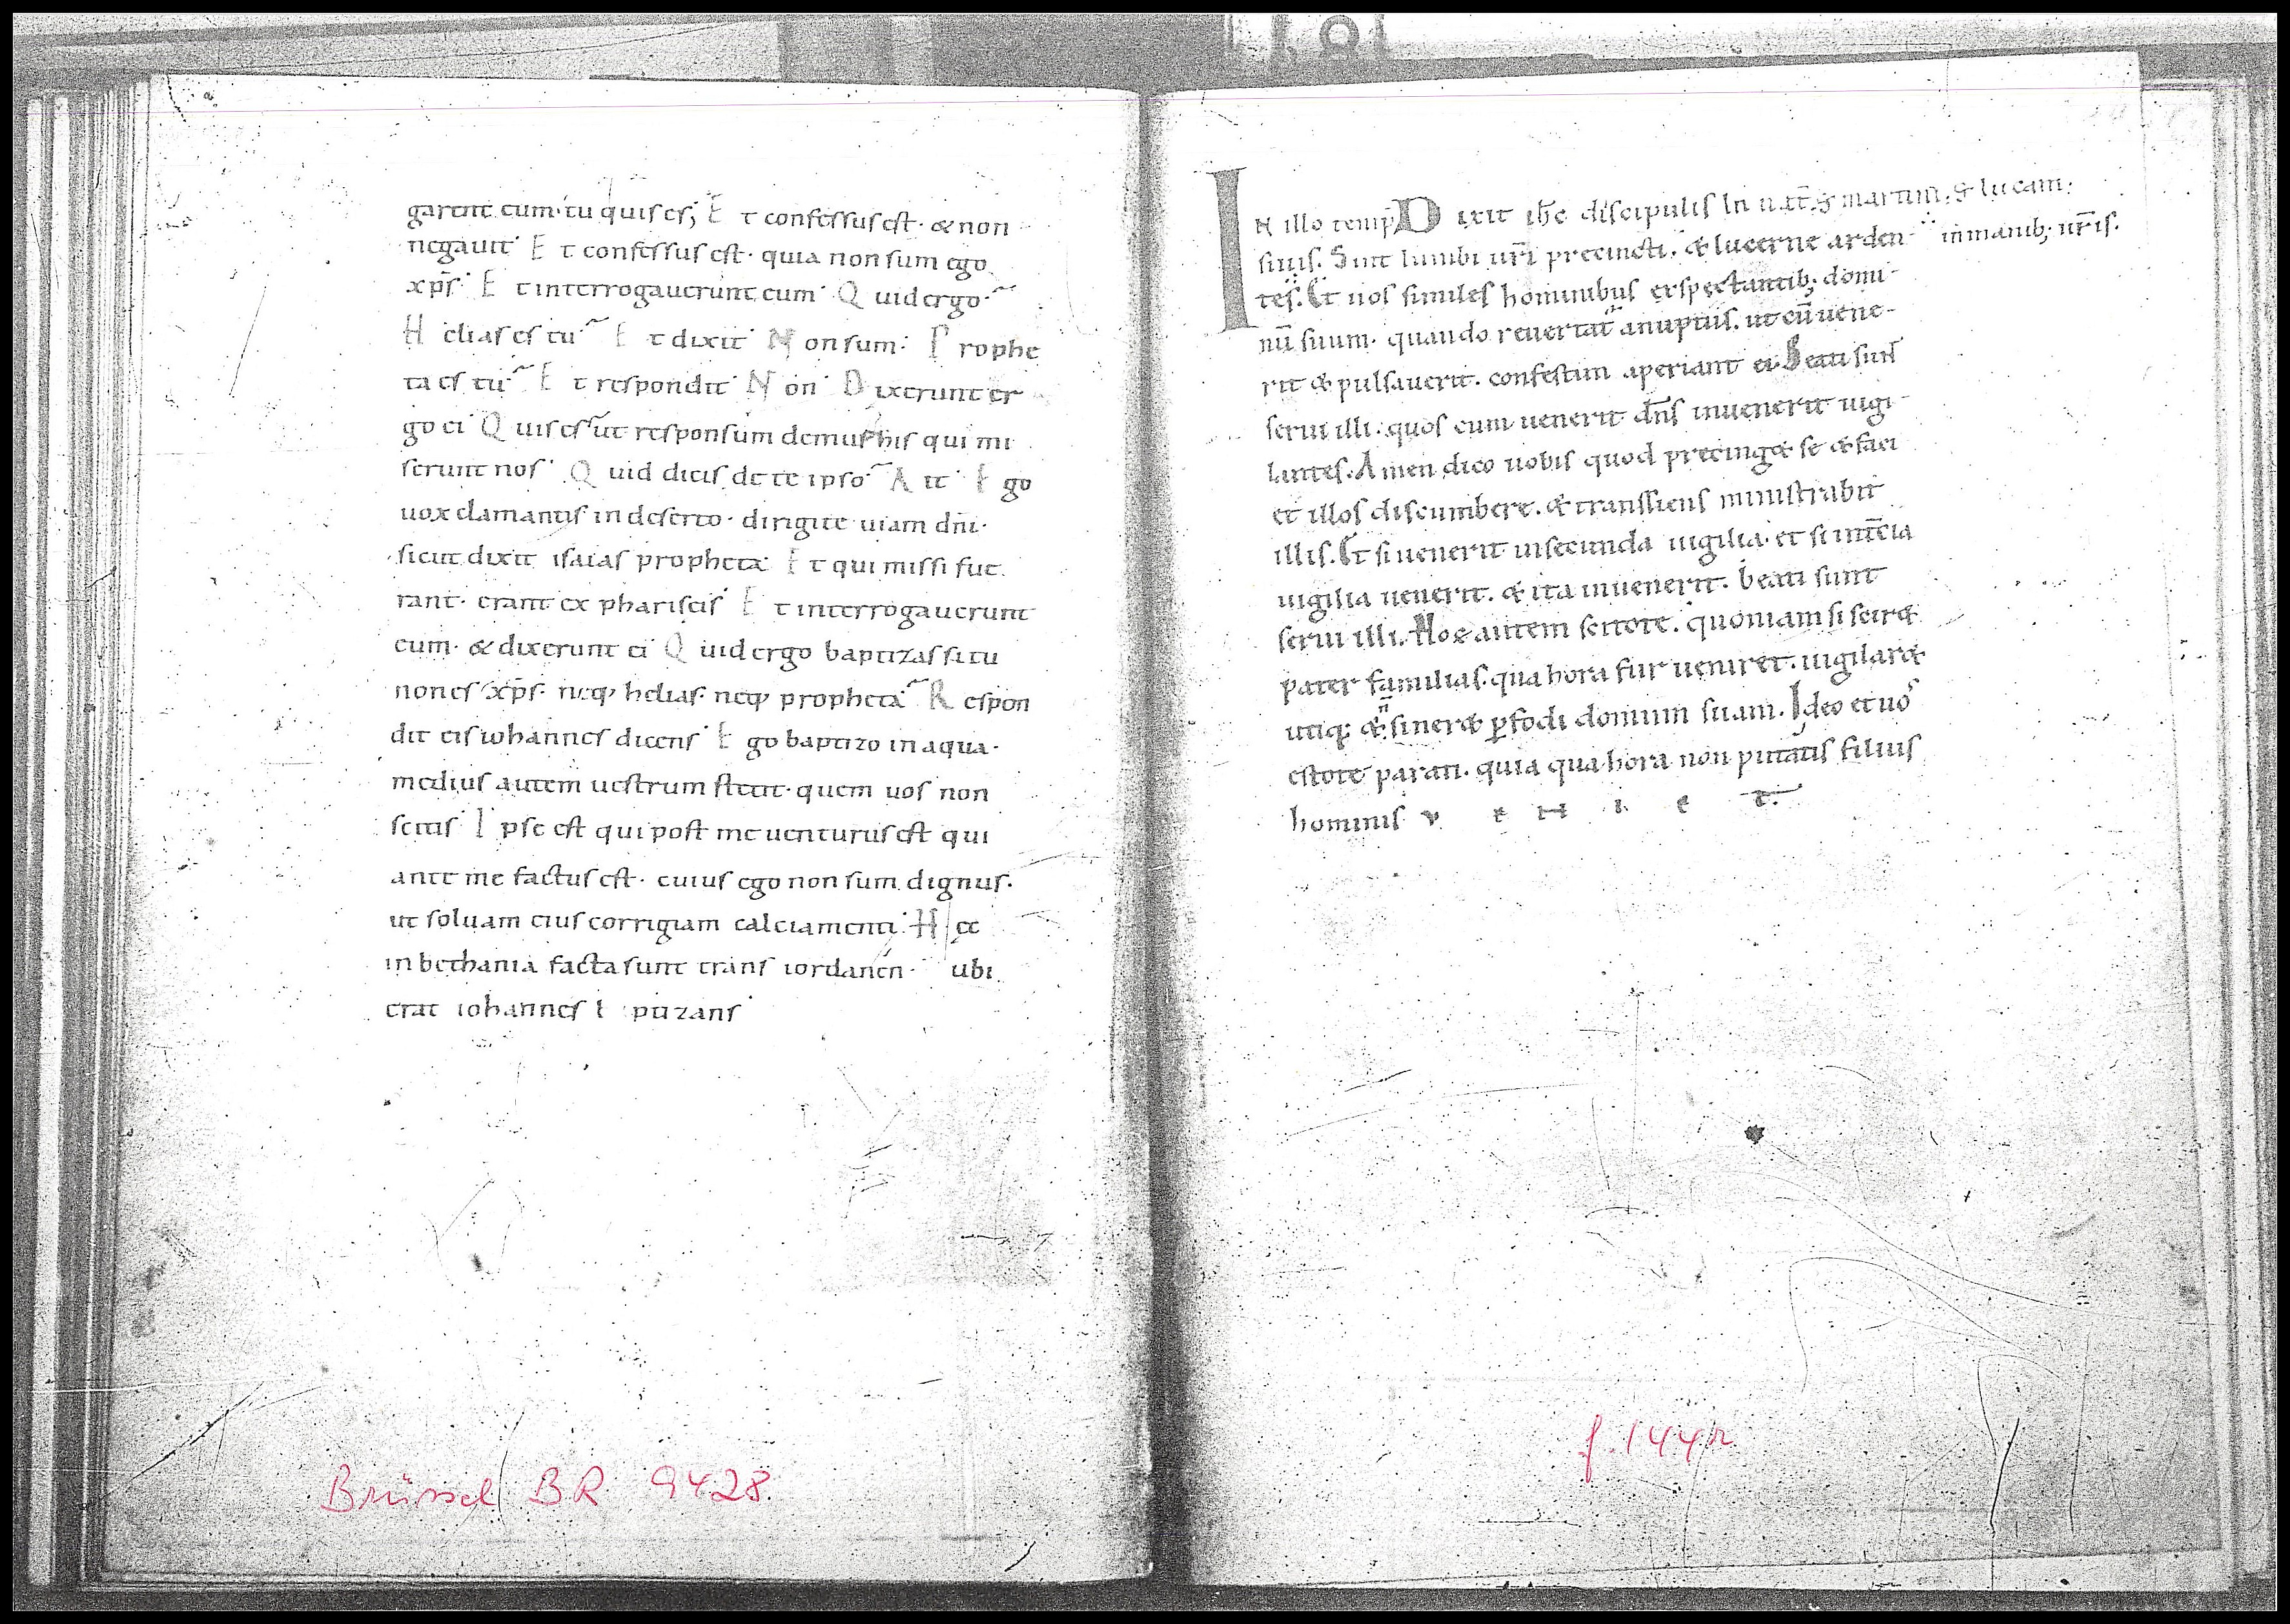 garent eum· tu quis es; Et confessus est· & non
negauit· Et confessus est· quia non sum ego
xp̄s· Et interrogauerunt eum· Quid ergo·
Helias es tu Et dixit Non sum· Prophe
ta es tu Et respondit Non Dixerunt er
go ei Quis es ut responsum demus his qui mi
serunt nos· Quid dicis de te ipso Ait Ego
uox clamantis in deserto· dirigite uiam dn̄i·
sicut dixit isaias propheta· Et qui missi fue
rant· erant ex phariseis Et interrogauerunt
eum· & dixerunt ei Quid ergo baptizas si tu
non es xp̄s· neq; helias· neq; propheta Respon
dit eis iohannes dicens Ego baptizo in aqua·
medius autem uestrum stetit· quem uos non
scitis· Ipse est qui post me uenturus est qui
ante me factus est· cuius ego non sum dignus·
ut soluam eius corrigiam calciamenti· Hec
in bethania facta sunt trans iordanen· ubi
erat iohannes ptizans·
In illo temp̄ Dixit ih̄c discipulis In nat̄ S martini, & lucam;
suis. Sint lumbi ur̄i precincti. & lucerne arden in manib; ur̄is.
tes. Et uos similes hominibus exspectantib; domi-
nū suum. quando reuertat̄ a nuptiis. ut cū uene-
rit & pulsauerit. confestim aperiant ei. Beati sun̄
serui illi. quos cum uenerit dn̄s inuenerit uigi-
lantes. Amen dico uobis quod precing& se & faci
et illos discumbere. & transiens ministrabit
illis. Et si uenerit in secunda uigilia. et si in tēcia
uigilia uenerit. & ita inuenerit. beati sunt
serui illi. Hoc autem scitote. quoniam si scir&
pater familias. qua hora fur ueniret. uigilar&
utiq; & n̄ siner& ꝑfodi domum suam. Ideo et uos
estote parati. quia qua hora non putatis filius
hominis ueniet.
Brüssel BR 9428
f. 144r